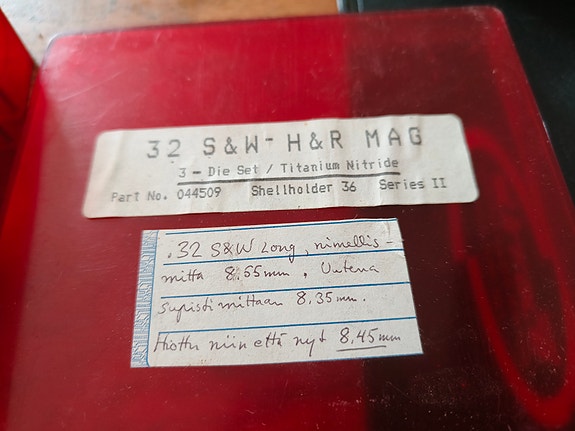 32 S&W-H&R MAG
3 - Die Set / Titanium Nitride
Part No. 044509 Shellholder 36 Series II
.32 S&W Long, nimellis-
mitta 8.55mm. Uutena
supisti mittaan 8.35mm.
Hiottu niin että nyt 8.45mm